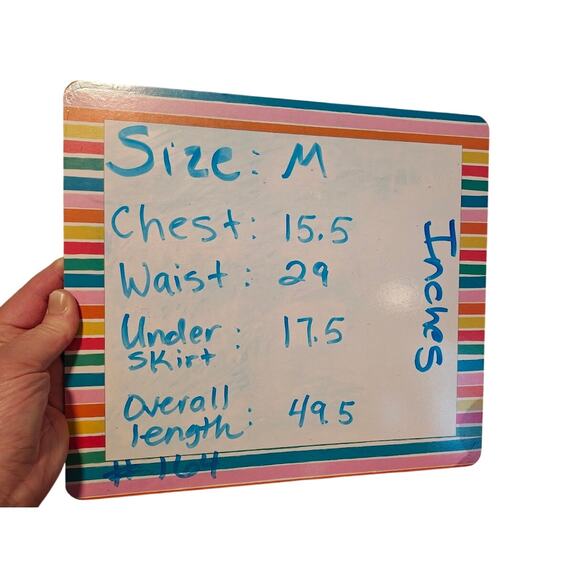 Size: M
Chest: 15.5
Waist: 29
Under
Skirt : 17.5
Overall
length : 49.5
# 164
Inches